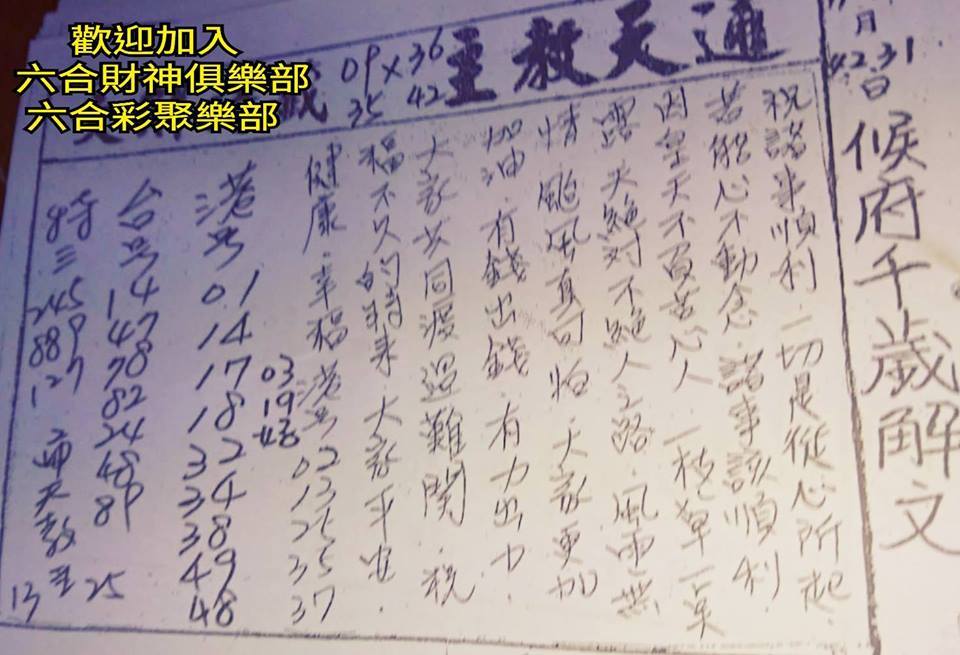 歡迎加入
六合財神俱樂部
六合彩聚樂部
通天教主
09×36
35 42
月
42.31
日
候府千歲解文
祝諸事順利.一切是從心所起.
苦能心不動念.諸事該順利.
因皇天不負苦心人.一枝草一点
露.天絕對不絕人之路.風雨無
情.颱風真可怕.大家更加
加油.有錢出錢.有力出力.
大家共同渡過難関.祝
福不久的將來.大家平安.
健康.幸福.港号 02 13 25 35 37
03
19
43
港号 01 14 17 18 32 34 38 49 48
台号 14 47 78 82 24 48 89 25
特三 245 889 127 通天教主 13